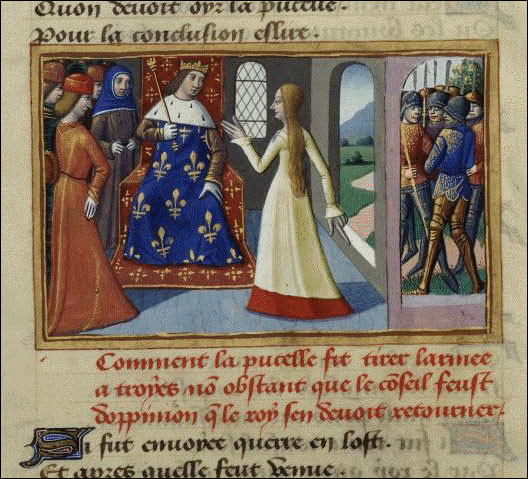 Quon devoit oyr la pucelle.
Pour la conclusion eslire.
Comment la pucelle fit tirer larmee
a troyes nõ obstant que le cõseil feust
doppinion q̃ le roy sen devoit retourner.
Si fut envoyee querre en lost.
Et apres quelle feut venue